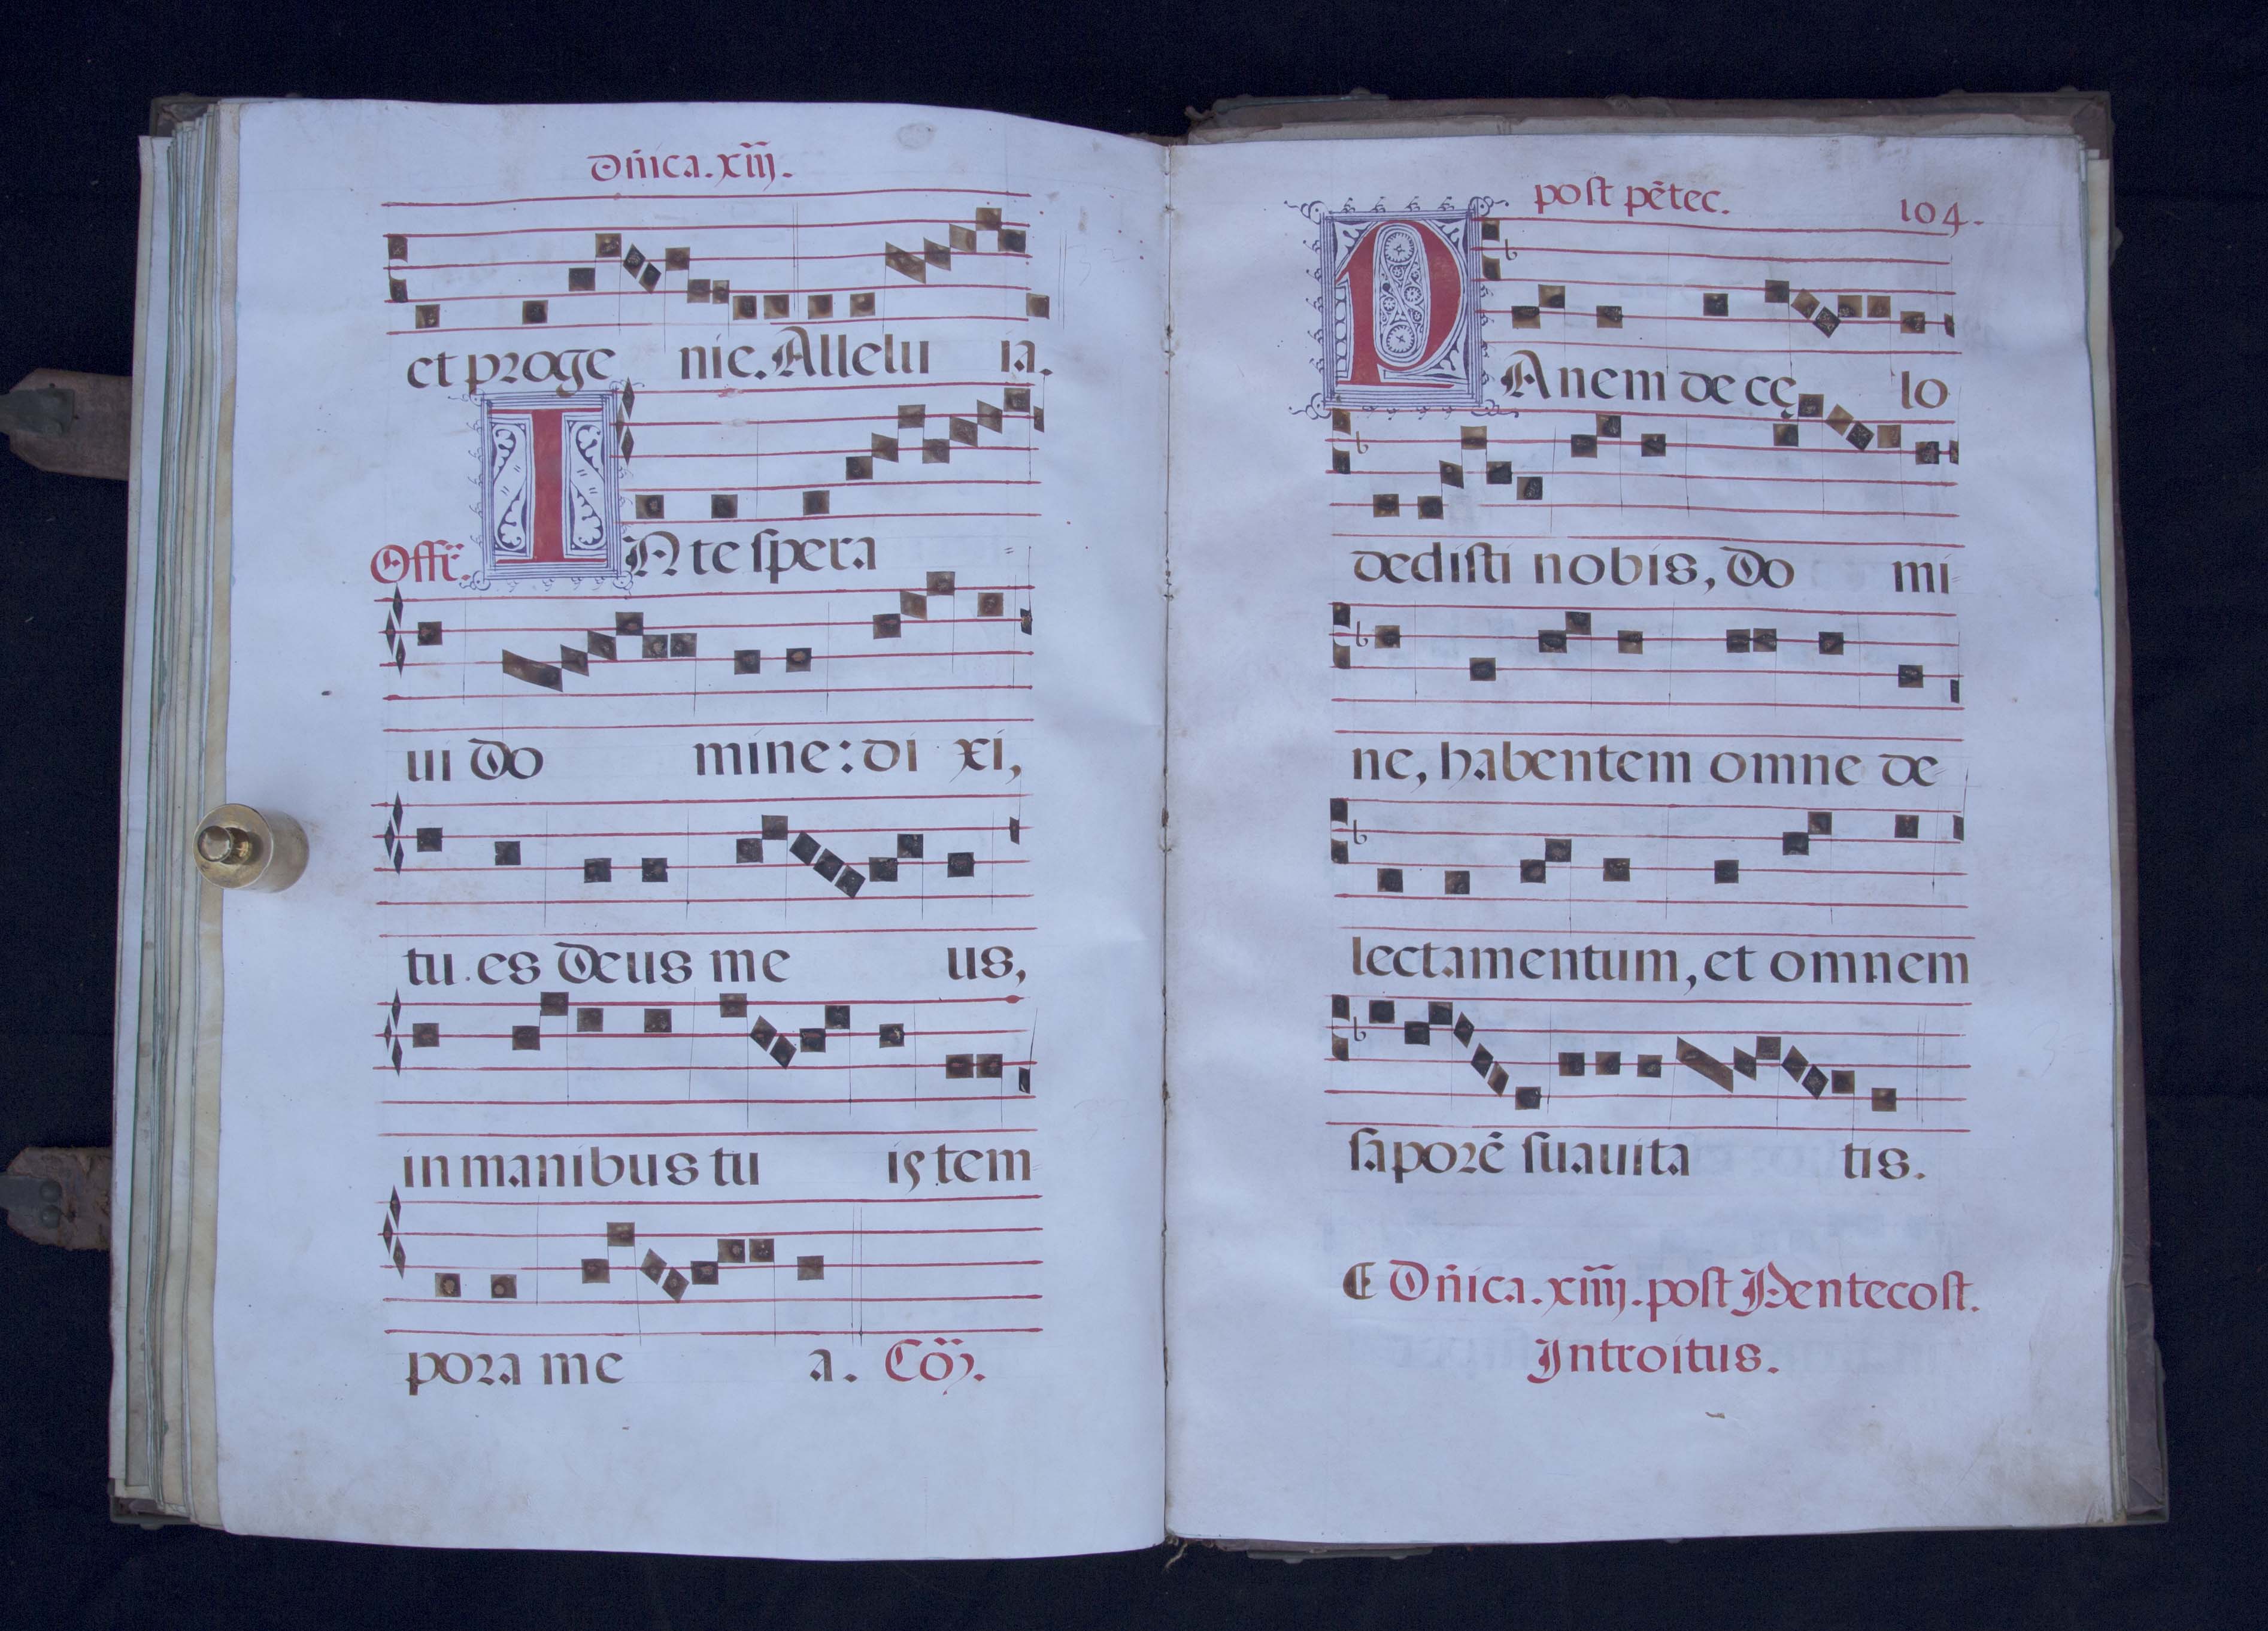 Dñica. xiij.
et proge nie. Allelu ia.
Offr̃. IN te spera
ui Do mine: di xi,
tu. es Deus me us,
in manibus tu is tem
pora me a. Cõ.
post pẽtec. 104.
PAnem de cę lo
dedisti nobis, Do mi
ne, habentem omne de
lectamentum, et omnem
saporẽ suauita tis.
Dñica. xiiij. post Pentecost.
Introitus.